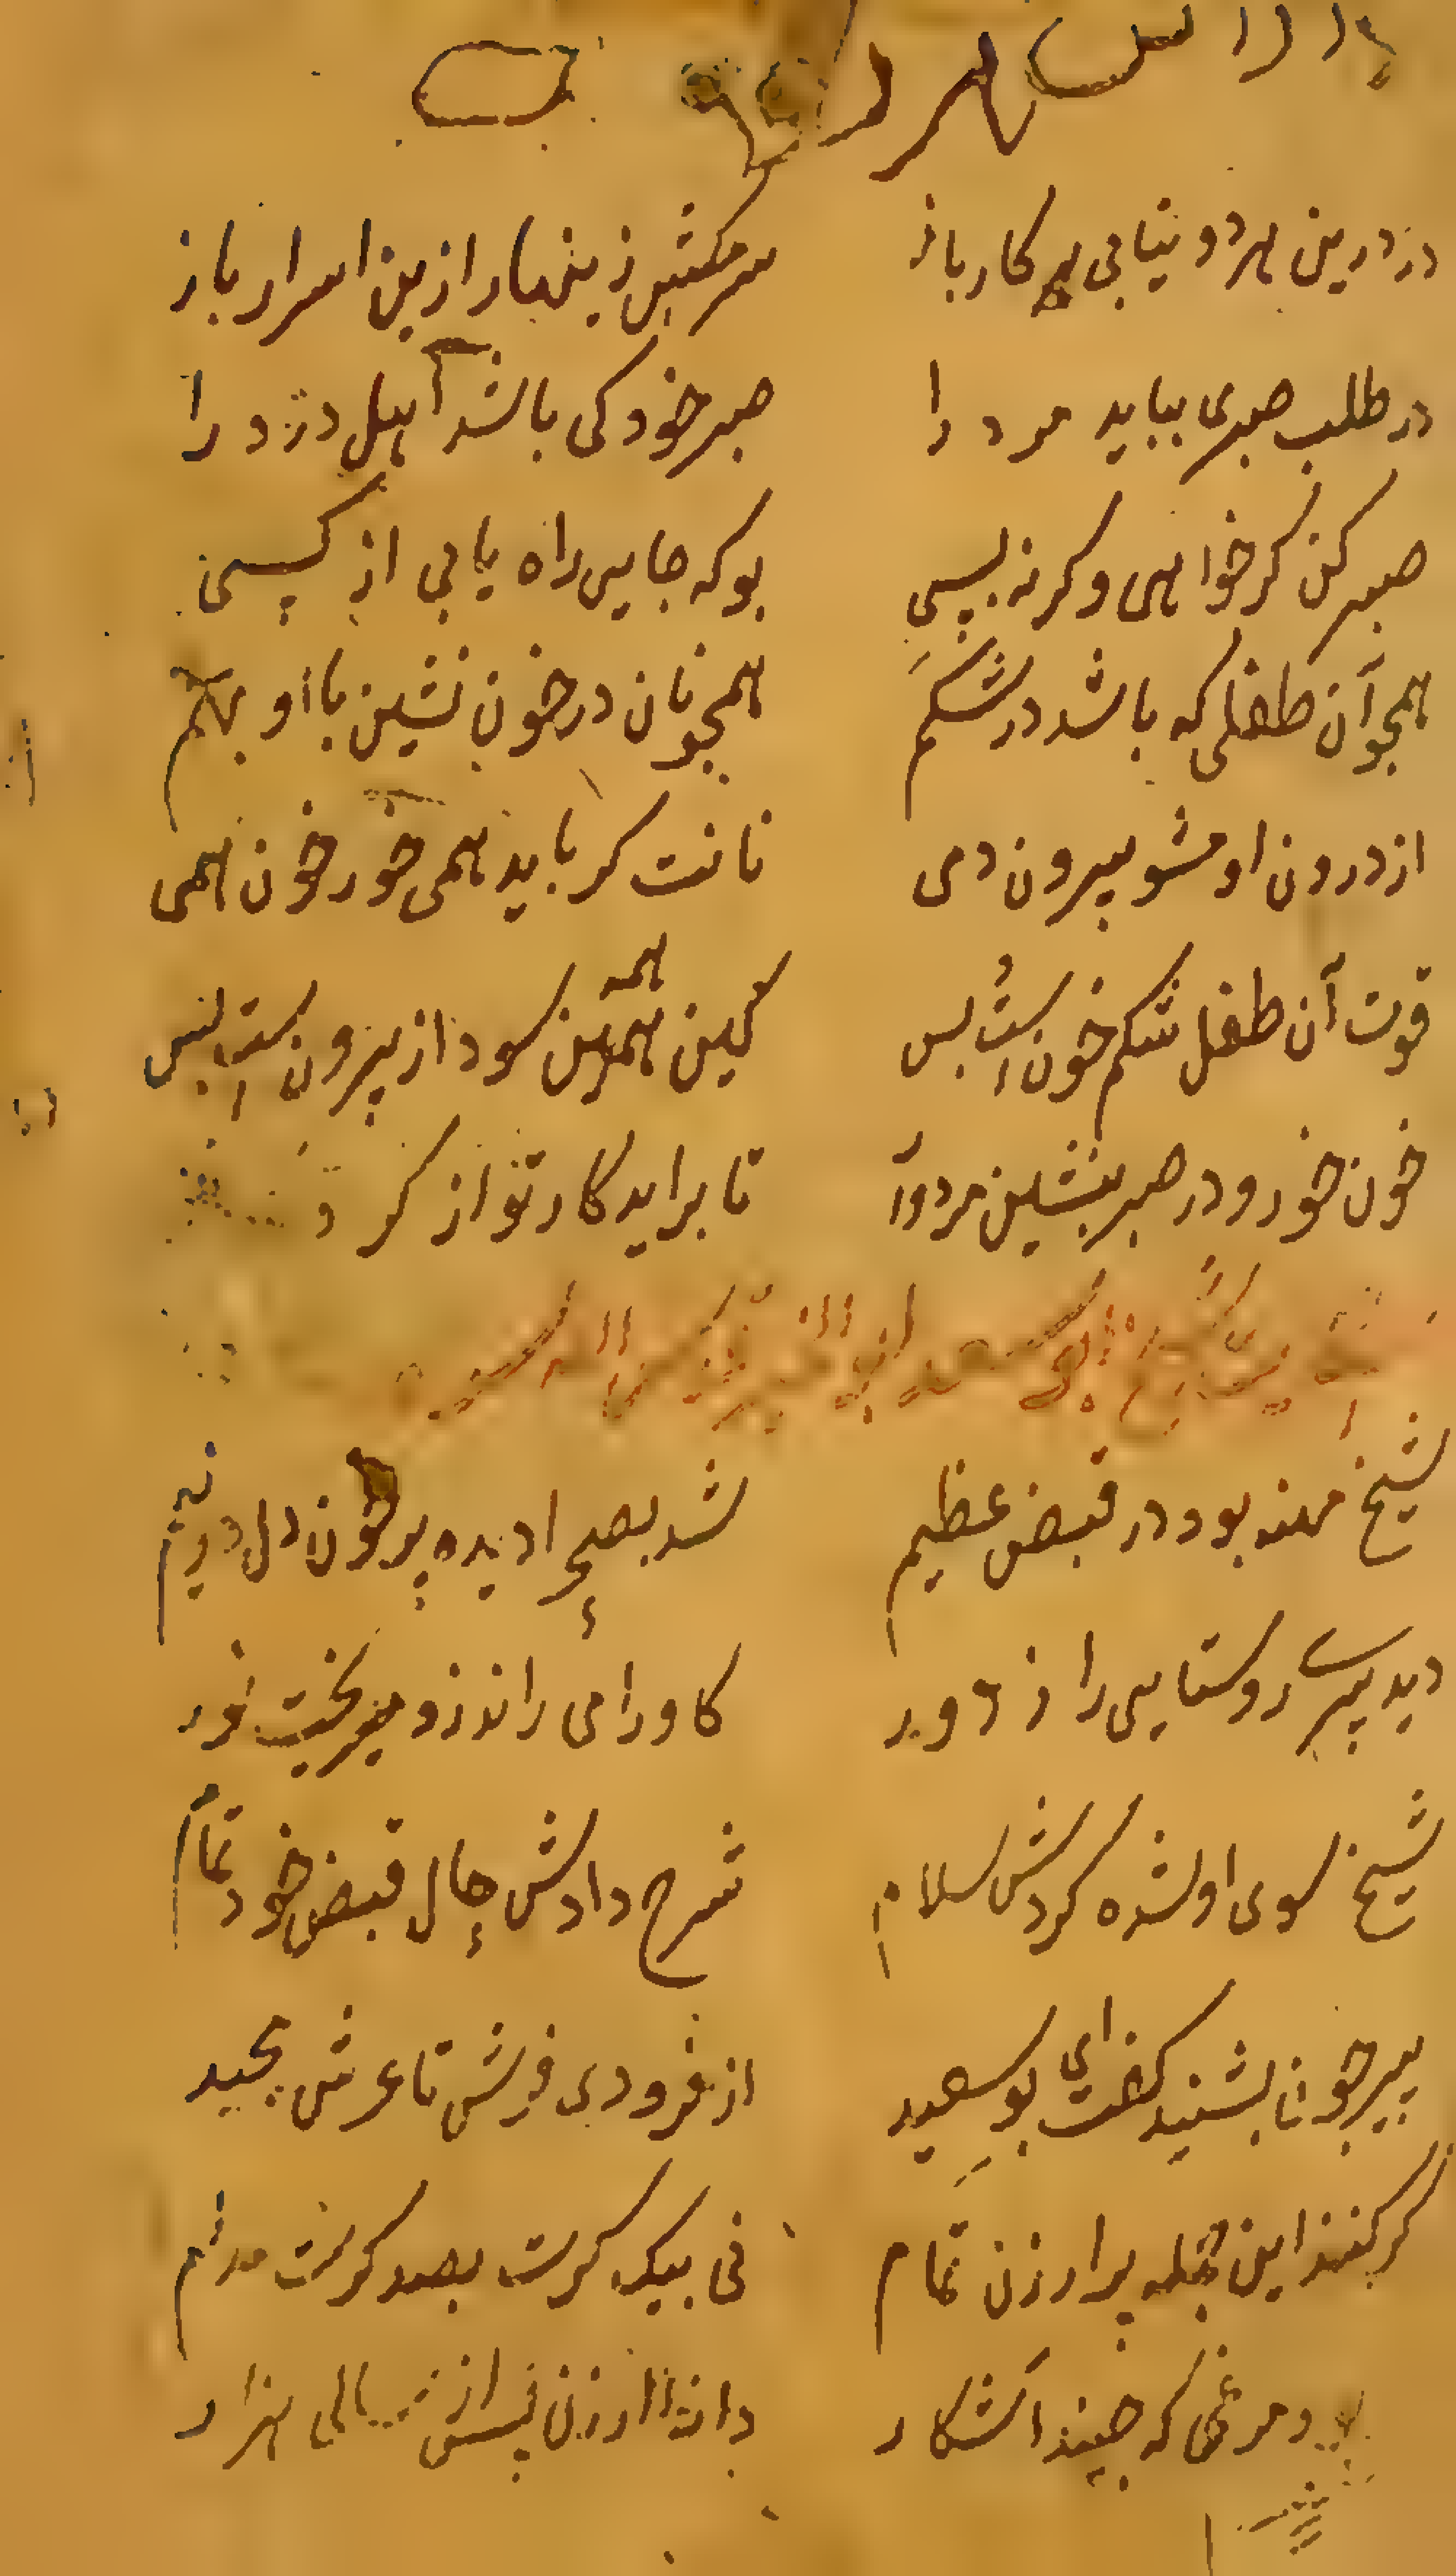 در درین هر دو نیابی هم کار باز سر مکش زینهار ازین اسرار باز
در طلب صبری بباید مرد را صبر خود کی باشد اهل درد را
صبر کن کر خواهی و کرنه بسی بوکه جایی راه یابی از کسی
همجو آن طفلی که باشد در شکم همجونان در خون نشین با او بهم
از درون او مشو بیرون دمی نانت کر باید همی خور خون همی
قوت آن طفل شکم خون است بس کین همه سود از بیرونست بس
خون خور و در صبر بنشین مردوار تا براید کار تو از کرد
شیخ مهنه بود در قبض عظیم شد بصحرا دیده پر خون دل دو نیم
دید پیری روستایی را ز دور کاو را می راند زو میریخت نور
شیخ سوی او شد کردش سلام شرح دادش حال قبض خود تمام
پیر جون بشنید کفت ای بو سعید از فرودی فرش تا عرش مجید
کر کنند این جمله پر ارزن تمام نی بیک کرت بصد کرت مدام
ور بود مرغی که چیند آشکار دانه ارزن پس از سالی هزار